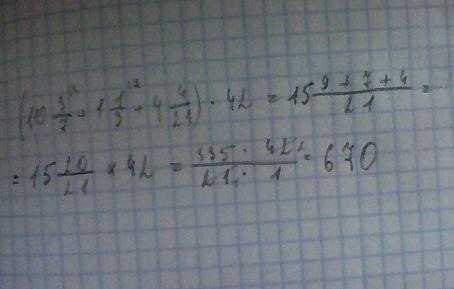 (10 3/7 + 1 1/3 + 4 4/21) · 42 = 15 (9 + 7 + 4)/21 =
= 15 20/21 × 42 = (335 · 42)/(21 · 1) = 670